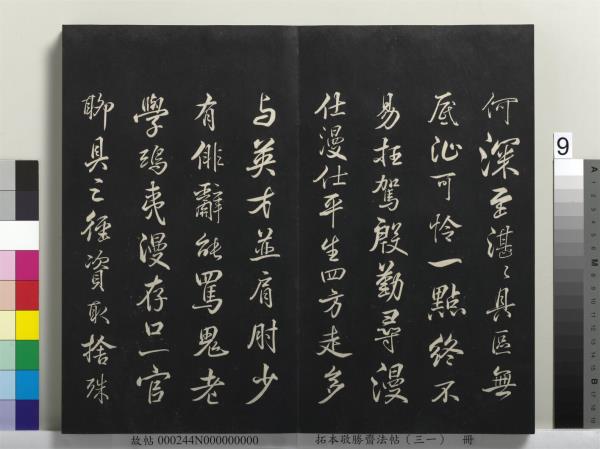 何深至湛〻具區無
底沚可怜一點終不
易枉駕殷勤尋漫
仕漫仕平生四方走多
与英才並肩肘少
有俳辭能罵鬼老
學鴟夷漫存口一官
聊具三徑資取捨殊
故帖 000244N000000000
拓本敬勝齋法帖(三一) 冊
9